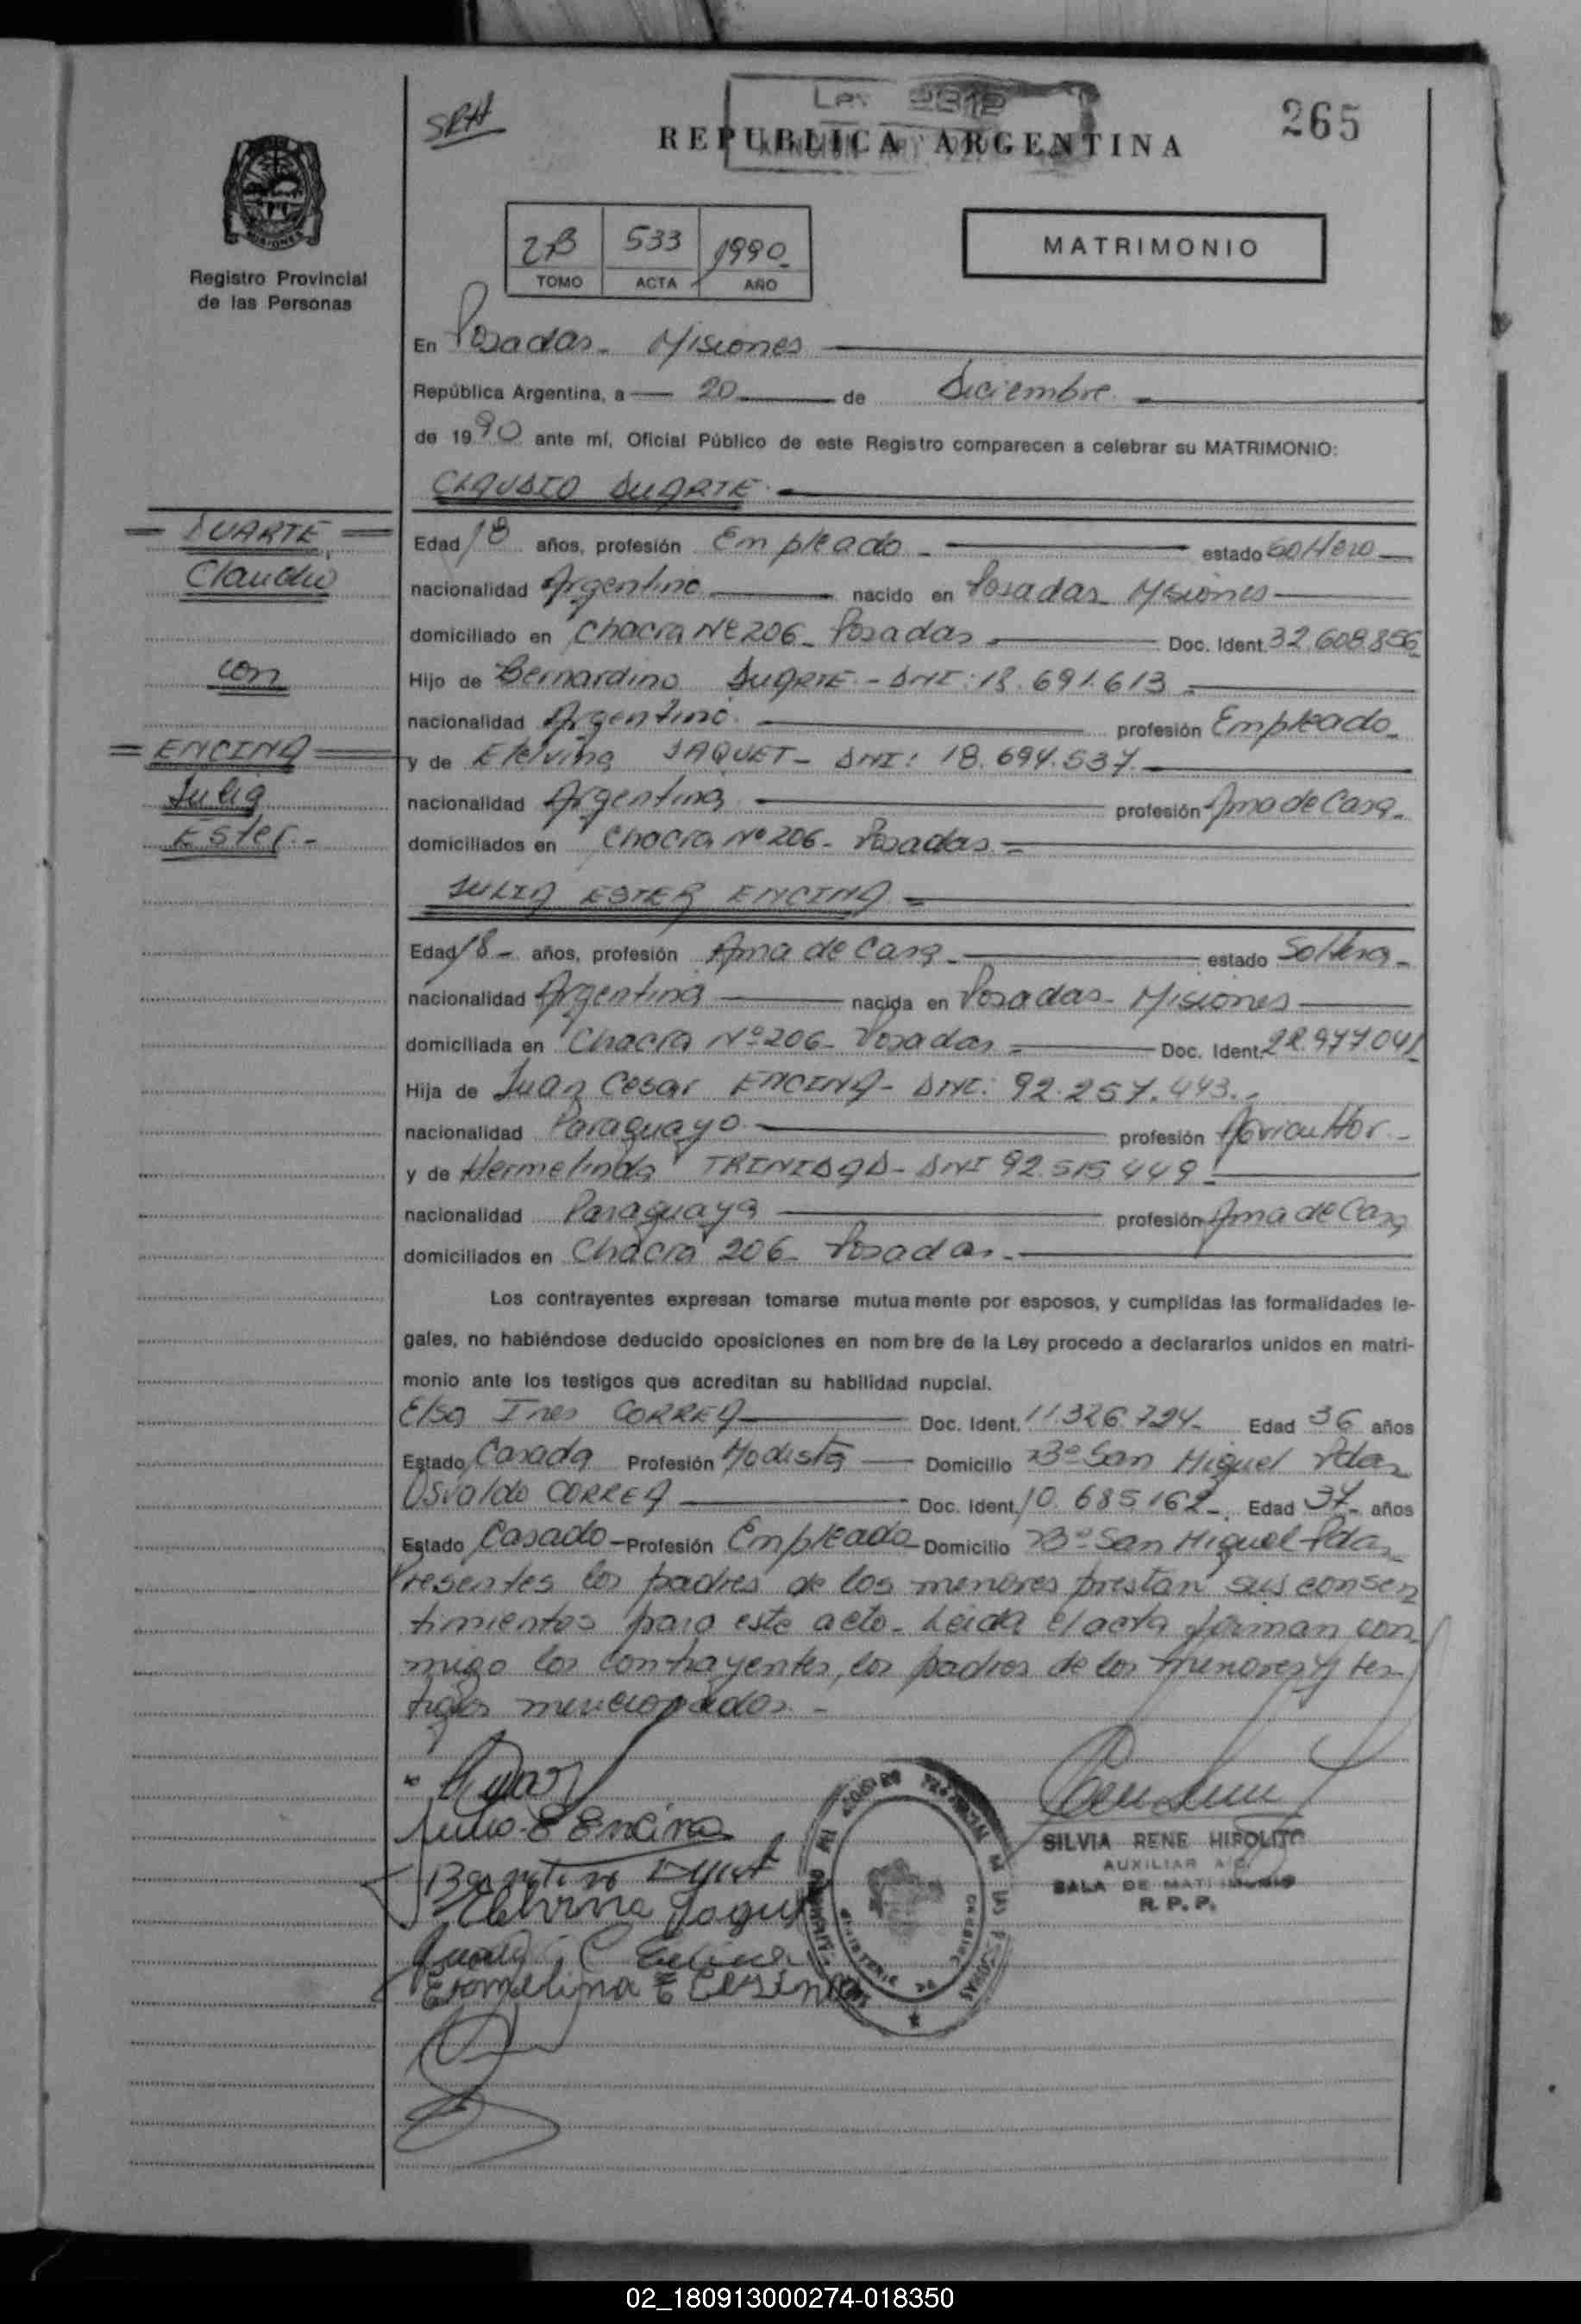 SRH
Ley 2312
265
REPUBLICA ARGENTINA
2B 533 1990
TOMO ACTA AÑO
MATRIMONIO
MISIONES
Registro Provincial
de las Personas
En Posadas - Misiones
República Argentina, a 20 de Diciembre
de 1990 ante mí, Oficial Público de este Registro comparecen a celebrar su MATRIMONIO:
CLAUDIO DUARTE.-
DUARTE
Claudio
con
ENCINA
Julia
Ester.-
Edad 18 años, profesión Empleado - estado Soltero
nacionalidad Argentino nacido en Posadas - Misiones
domiciliado en Chacra Nº 206 - Posadas - Doc. Ident. 32.608.856
Hijo de Bernardino DUARTE - DNI: 18.691.613
nacionalidad Argentino profesión Empleado
y de Etelvina JAQUET - DNI: 18.694.537
nacionalidad Argentina profesión Ama de Casa
domiciliados en Chacra Nº 206 - Posadas
JULIA ESTER ENCINA
Edad 18 - años, profesión Ama de Casa - estado Soltera -
nacionalidad Argentina nacida en Posadas - Misiones
domiciliada en Chacra Nº 206 - Posadas - Doc. Ident. 22.977.041
Hija de Juan Cesar ENCINA - DNI: 92.257.443.-
nacionalidad Paraguayo profesión Agricultor -
y de Hermelinda TRINIDAD - DNI 92.515.449
nacionalidad Paraguaya profesión Ama de Casa
domiciliados en Chacra 206 - Posadas -
Los contrayentes expresan tomarse mutuamente por esposos, y cumplidas las formalidades le-
gales, no habiéndose deducido oposiciones en nombre de la Ley procedo a declararlos unidos en matri-
monio ante los testigos que acreditan su habilidad nupcial.
Elsa Ines CORREA Doc. Ident. 11.326.724 - Edad 36 años
Estado Casada Profesión Modista Domicilio Bº San Miguel Pdas
Osvaldo CORREA Doc. Ident. 10.685.162 - Edad 37 - años
Estado Casado - Profesión Empleado - Domicilio Bº San Miguel Pdas
Presentes los padres de los menores prestan sus consen
timientos para este acto - Leida el acta firman con
migo los contrayentes, los padres de los menores y tes
tigos mencionados -
Julia E Encina
Etelvina Jaquet
SILVIA RENE HIPOLITO
AUXILIAR A/C.
SALA DE MATRIMONIO
R. P. P.
02_180913000274-018350